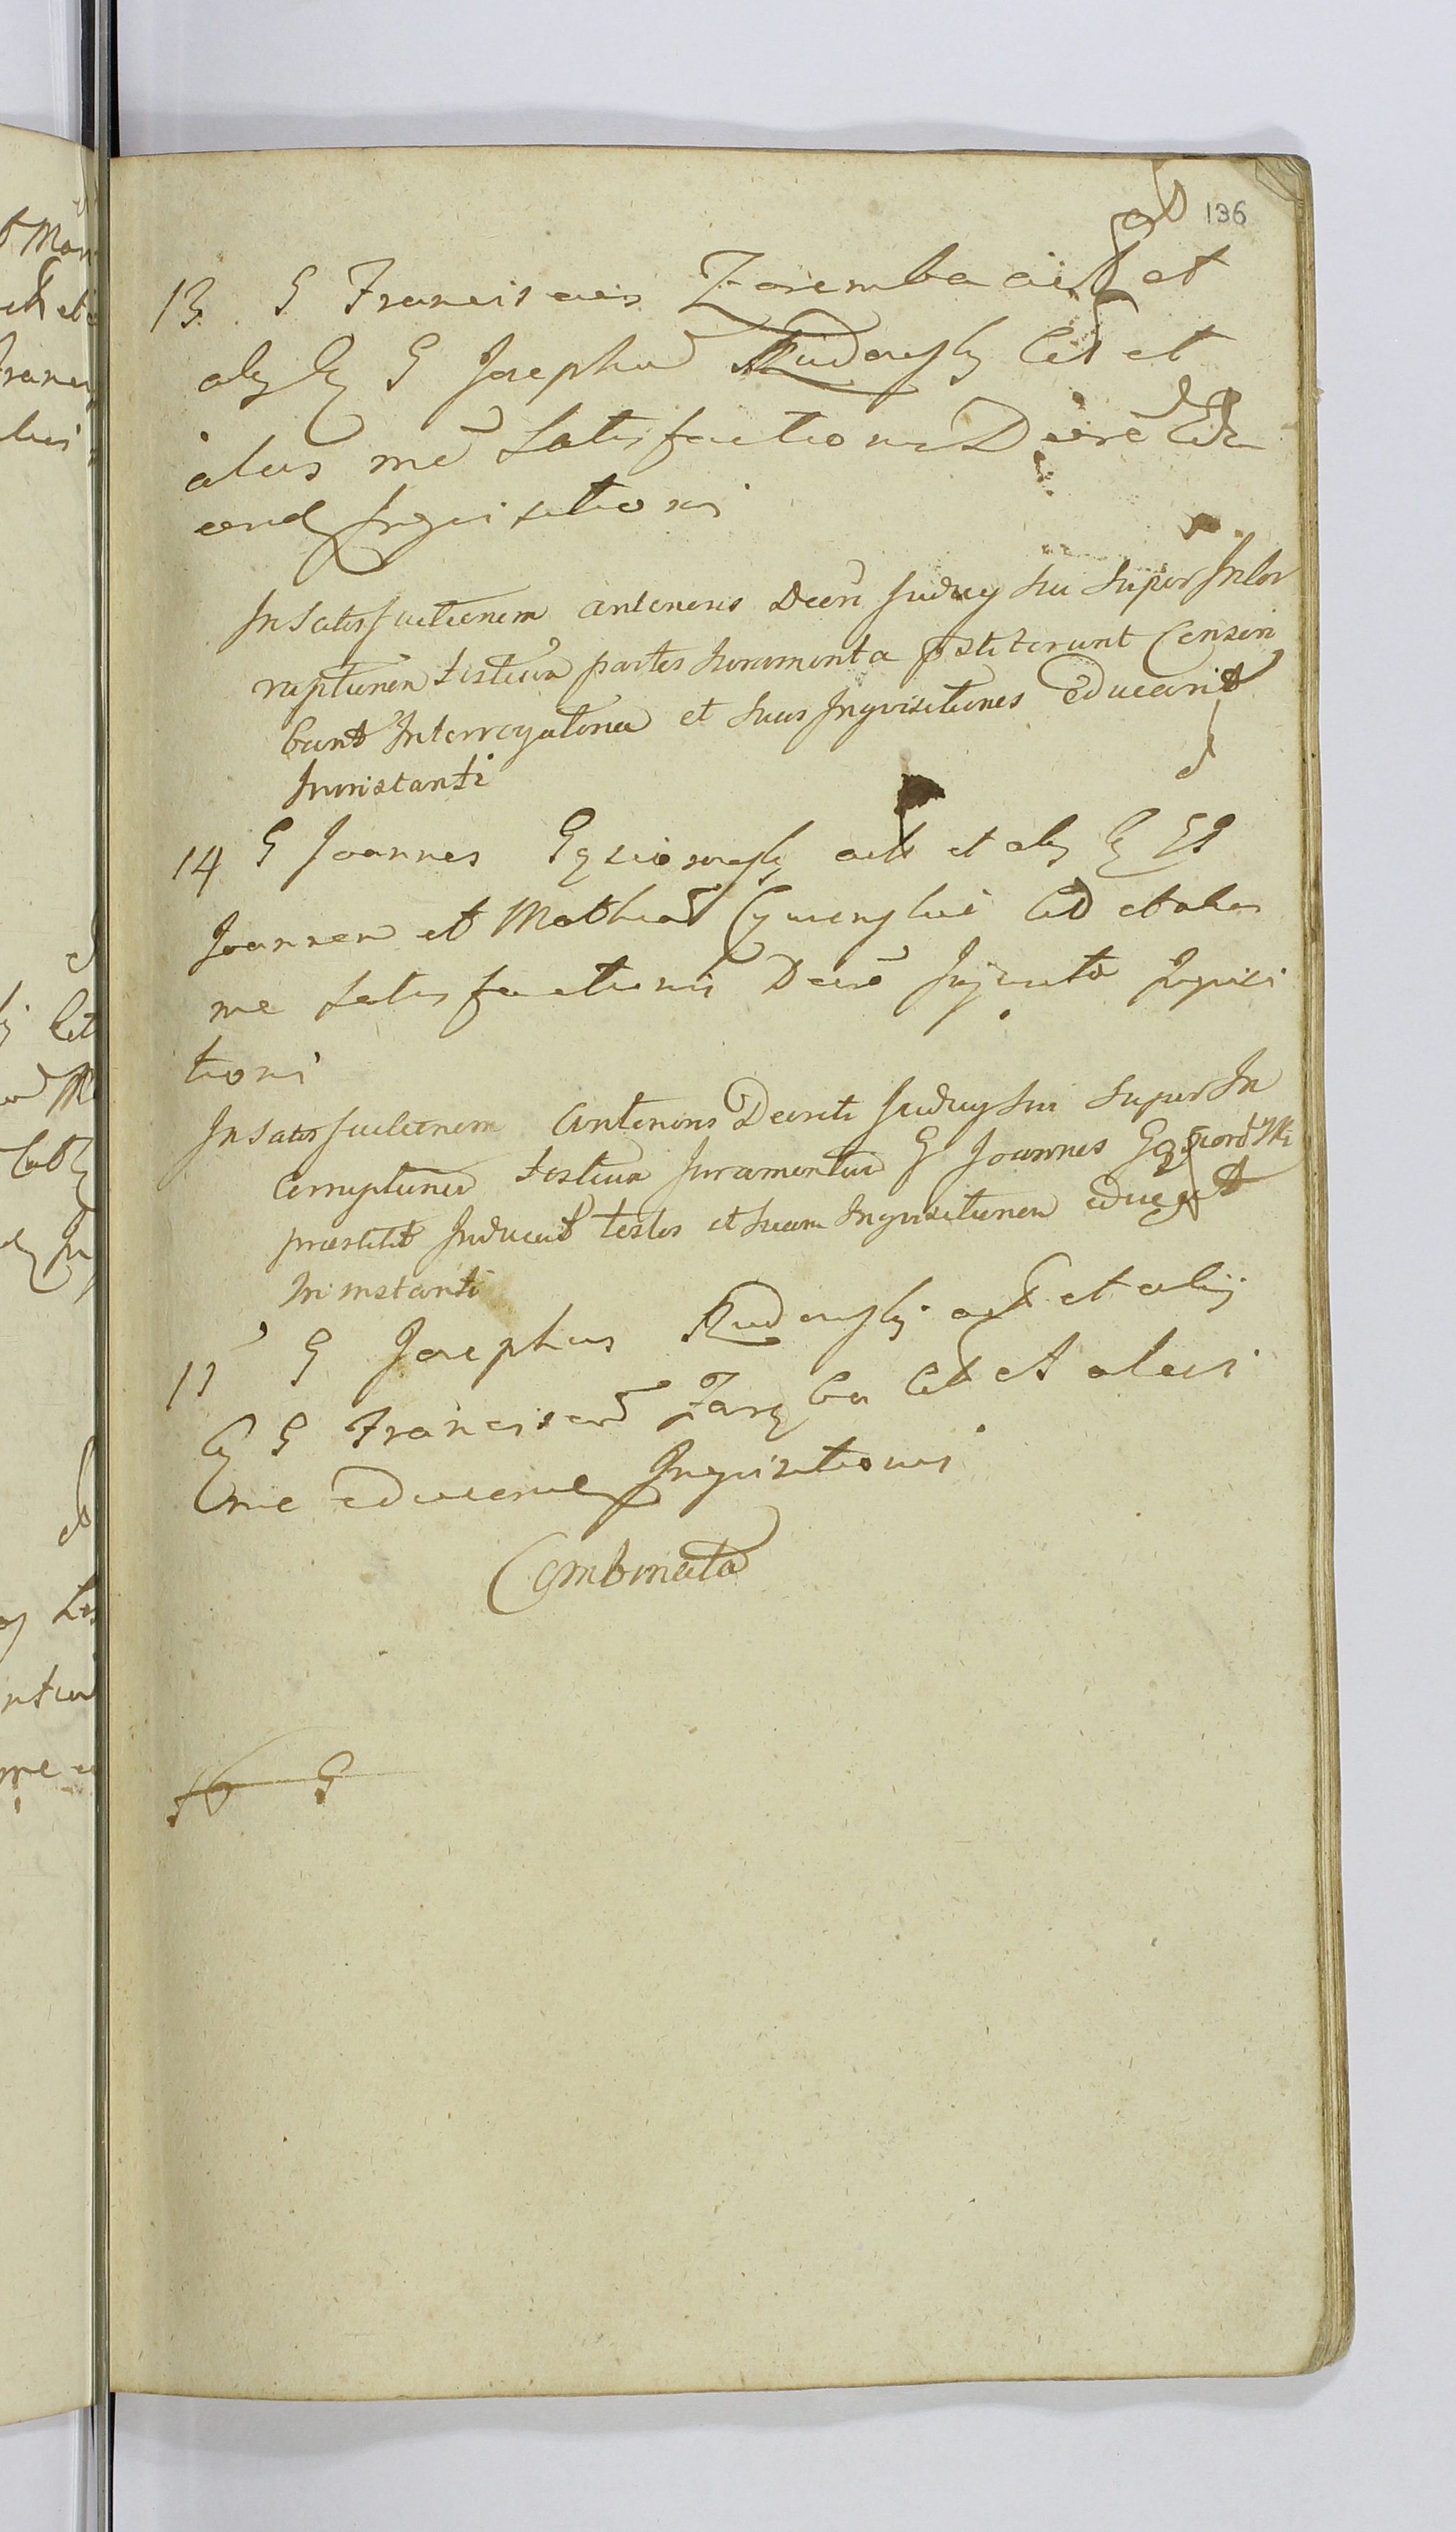 136
13. G Franciscus Zaremba act et
alij G Josephū Rudawsky Cit et
alios me Satisfactioni Decre
Inquisitioni
In Satisfactionem anterioris Decri Judicy sui super Incor
ruptionem testium partes Juramenta pstiterunt Conscri
bunt Interrogatoria et suas Inquisitiones educant
In instanti
14 G Joannes act et alij GG
Joannem et Mathiam Cit et alios
me Satisfactionis Decre Injuncta Inquisi
tioni
In Satisfactionem Anterioris Decreti Judicy sui super In
Corruptionem testium Juramentum G Joannes
praestitit Inducit testes et suam Inquisitionem educet
In instanti
15 G Josephus Rudawsky act et alij
G Franciscum Zaręba Cit et alios
me Inquisitioni
Combinata
16 G